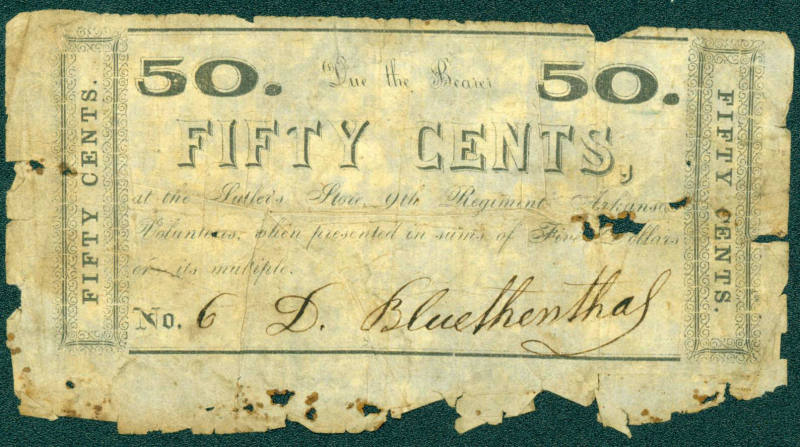 50. Due the Bearer 50.
FIFTY CENTS,
at the Sutler's Store, 9th Regiment Arkansas
Volunteers, when presented in sums of Five Dollars
or its multiple.
No. 6 D. Bluethenthal
FIFTY CENTS.
FIFTY CENTS.